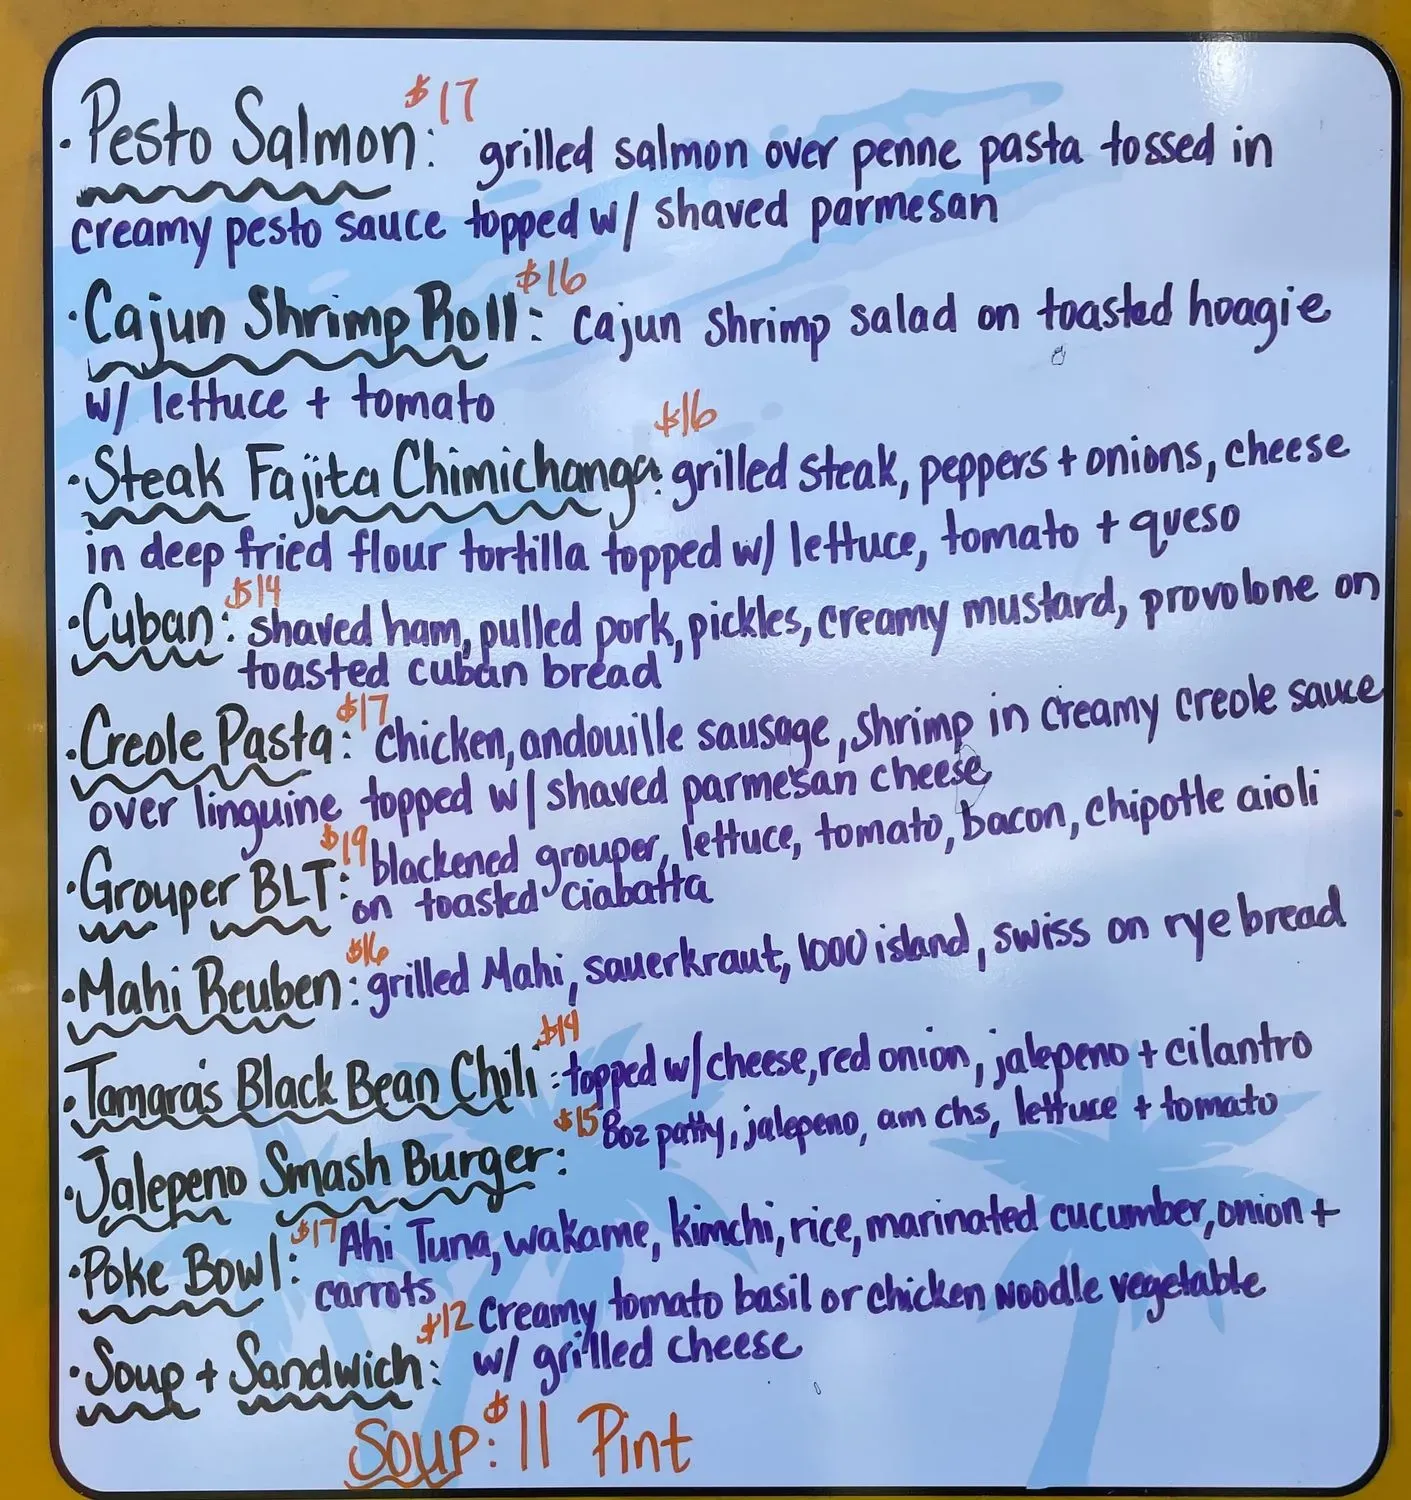 • Pesto Salmon: $17 grilled salmon over penne pasta tossed in
creamy pesto sauce topped w/ shaved parmesan
• Cajun Shrimp Roll: $16 Cajun Shrimp salad on toasted hoagie
w/ lettuce + tomato
• Steak Fajita Chimichanga: $16 grilled steak, peppers + onions, cheese
in deep fried flour tortilla topped w/ lettuce, tomato + queso
• Cuban: $14 shaved ham, pulled pork, pickles, creamy mustard, provolone on
toasted cuban bread
• Creole Pasta: $17 Chicken, andouille sausage, shrimp in creamy creole sauce
over linguine topped w/ shaved parmesan cheese
• Grouper BLT: $19 blackened grouper, lettuce, tomato, bacon, chipotle aioli
on toasted ciabatta
• Mahi Reuben: $16 grilled Mahi, sauerkraut, 1000 island, swiss on rye bread
• Tamara's Black Bean Chili: $14 topped w/ cheese, red onion, jalepeno + cilantro
• Jalepeno Smash Burger: $15 8oz patty, jalepeno, am chs, lettuce + tomato
• Poke Bowl: $17 Ahi Tuna, wakame, kimchi, rice, marinated cucumber, onion +
carrots
• Soup + Sandwich: $12 Creamy tomato basil or chicken noodle vegetable
w/ grilled cheese
Soup: $11 Pint